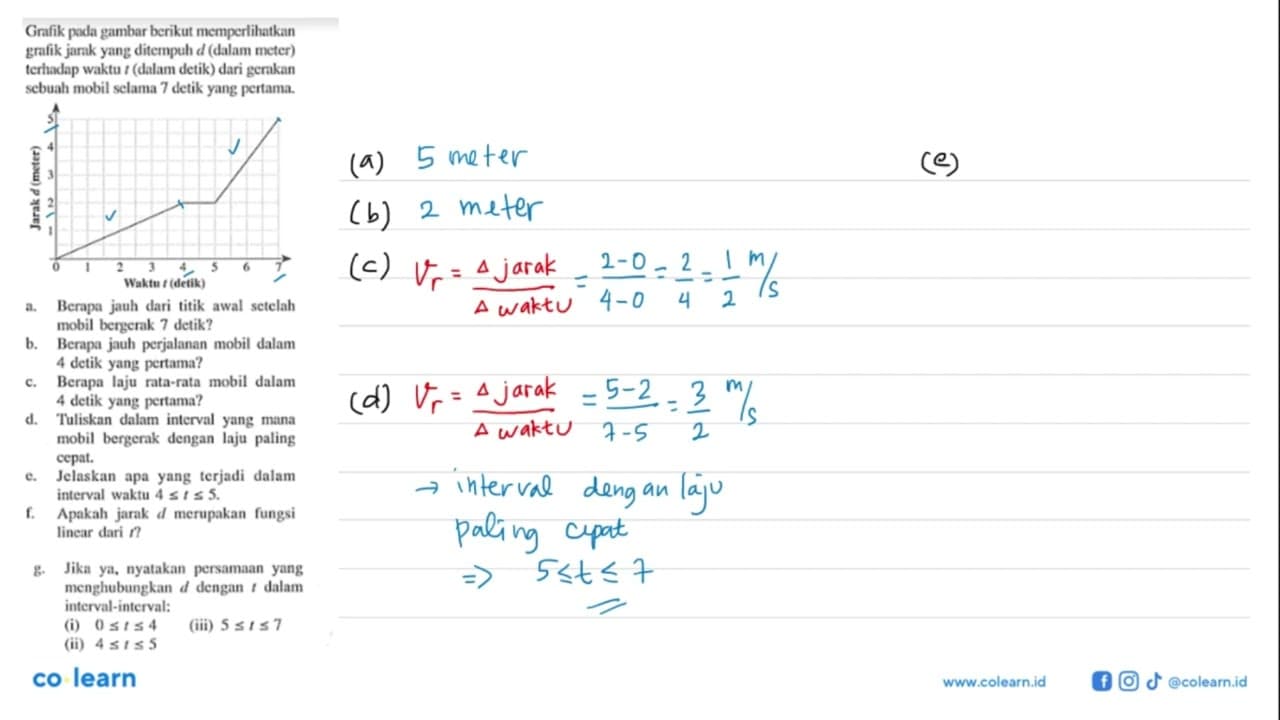 Grafik pada gambar berikut memperlihatkan
grafik jarak yang ditempuh d (dalam meter)
terhadap waktu t (dalam detik) dari gerakan
sebuah mobil selama 7 detik yang pertama.
Jarak d (meter)
5
4
3
2
1
0 1 2 3 4 5 6 7
Waktu t (detik)
a. Berapa jauh dari titik awal setelah
mobil bergerak 7 detik?
b. Berapa jauh perjalanan mobil dalam
4 detik yang pertama?
c. Berapa laju rata-rata mobil dalam
4 detik yang pertama?
d. Tuliskan dalam interval yang mana
mobil bergerak dengan laju paling
cepat.
e. Jelaskan apa yang terjadi dalam
interval waktu 4 ≤ t ≤ 5.
f. Apakah jarak d merupakan fungsi
linear dari t?
g. Jika ya, nyatakan persamaan yang
menghubungkan d dengan t dalam
interval-interval:
(i) 0 ≤ t ≤ 4 (iii) 5 ≤ t ≤ 7
(ii) 4 ≤ t ≤ 5
(a) 5 meter
(b) 2 meter
(c) Vr = Δ jarak / Δ waktu = 2-0 / 4-0 = 2/4 = 1/2 m/s
(d) Vr = Δ jarak / Δ waktu = 5-2 / 7-5 = 3/2 m/s
→ interval dengan laju
paling cepat
=> 5 ≤ t ≤ 7
(e)
co learn
www.colearn.id
@colearn.id